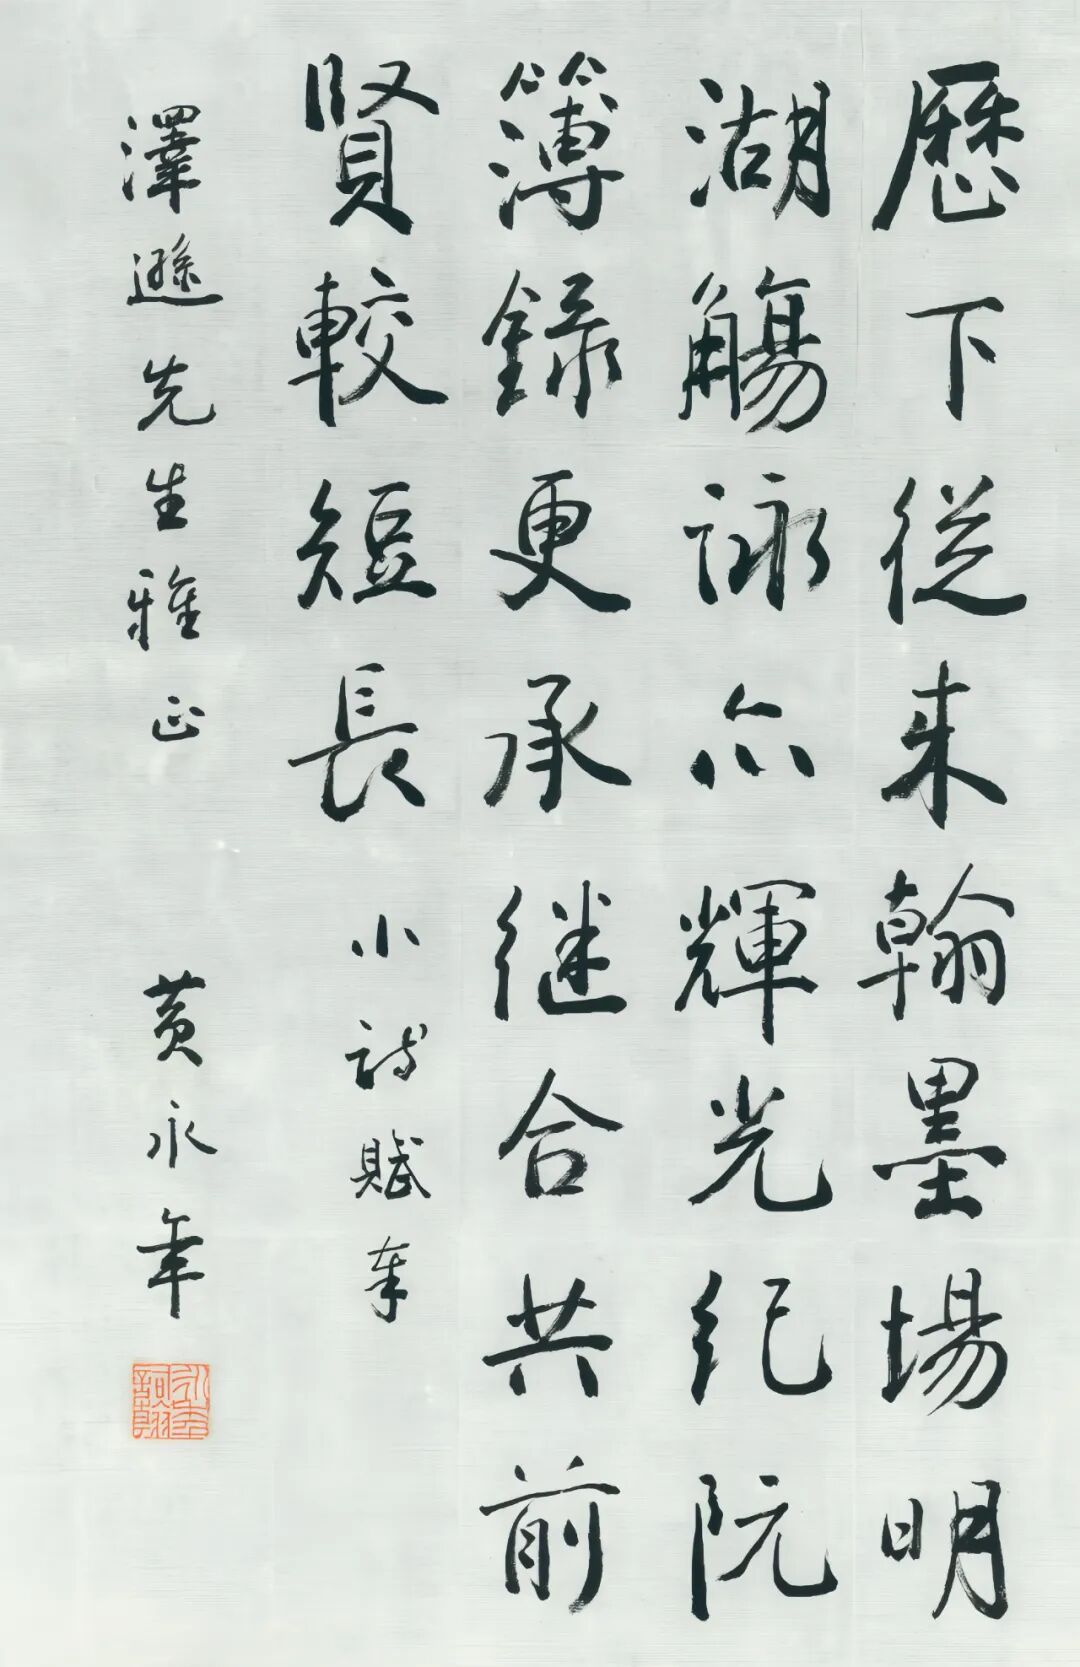 歷下従来翰墨場明
湖觴詠亦輝光紀阮
簿録更承继合共前
賢較短長
小詩賦奉
澤遜先生雅正
黄永年